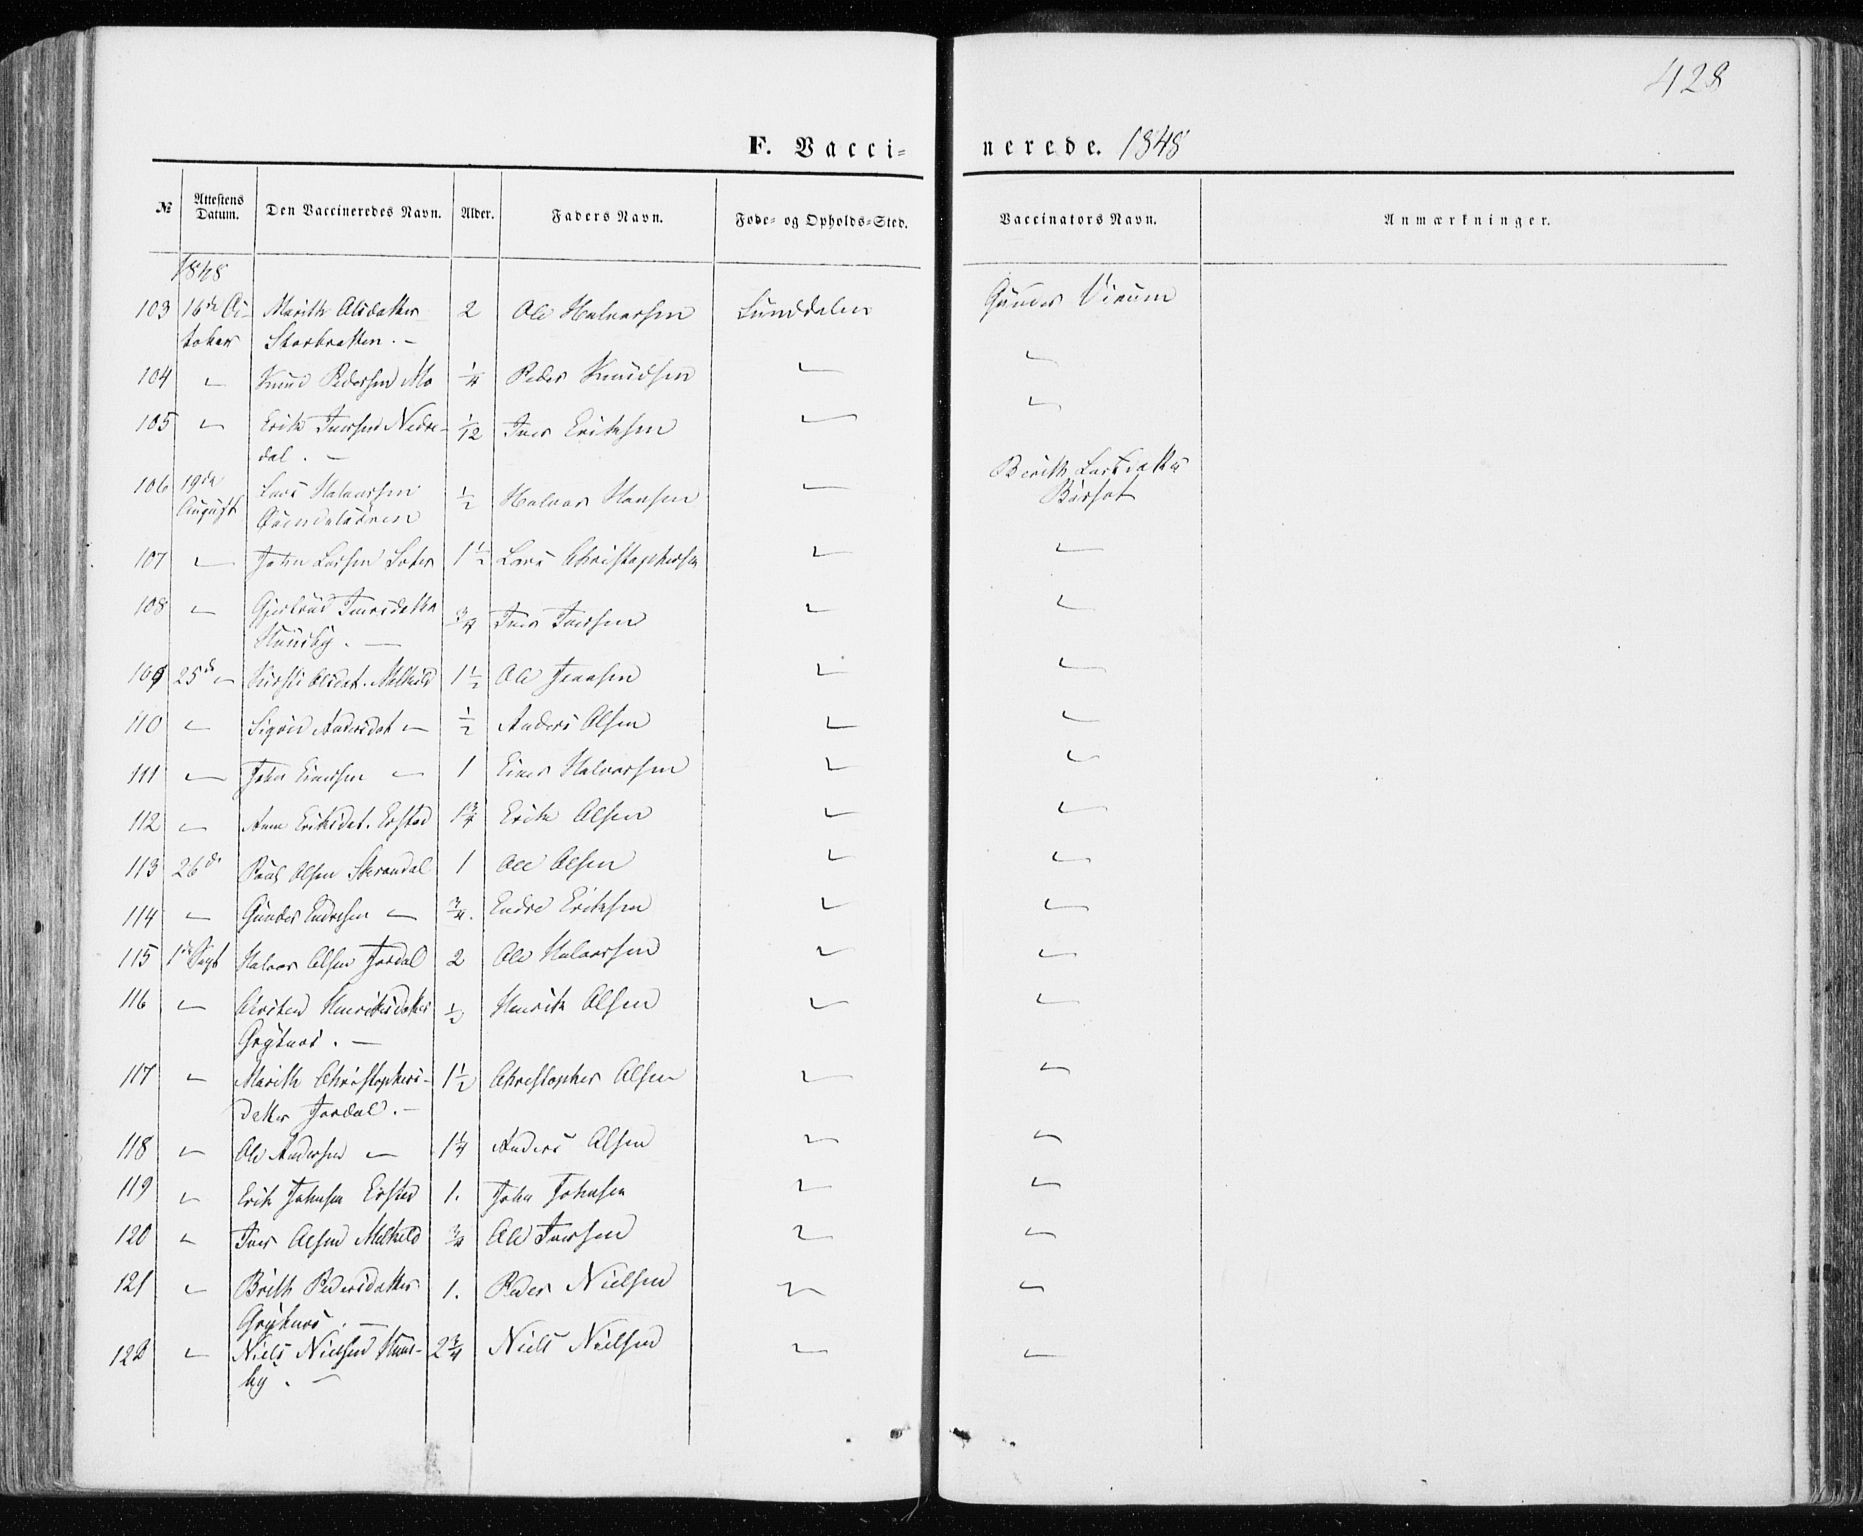 428
F. Vacci- nerede. 1848
№ Attestens Datum. Den Vaccineredes Navn. Alder. Faders Navn. Føde- og Opholds-Sted. Vaccinators Navn. Anmærkninger.
1848
103 16de Oc- Marith Olsdatter 2 Ole Halvorsen Sunddalen Gunder Virum
tober Storbratten. -
104 " Knud Pedersen Mo 1/4 Peder Knudsen " "
105 " Erik Iversen Nedre- 1/12 Iver Eriksen " "
dal. -
106 19de Lars Halvorsen 1/2 Halvor Hansen " Berith Larsdatter
August Bårset
107 " John Larsen 1 1/2 Lars Christophersen " "
108 " Gjertrud Iversdatter 3/4 Iver Iversen " "
Huusby. -
109 25de " Kirsti Olsdat. Melkild 1 1/2 Ole Jensen " "
110 " Sigrid Andersdat " 1/2 Anders Olsen " "
111 " John Einersen " 1 Einer Halvorsen " "
112 " Ane Eriksdat. Erstad 1 3/4 Erik Olsen " "
113 26de Paul Olsen 1 Ole Olsen " "
114 " Gunder Endresen " 3/4. Endre Eriksen " "
115 1de Sept Halvor Olsen Jordal 2 Ole Halvorsen " "
116 " Kirsten Henriksdatter Henrik Olsen " "
Grytnes. -
117 " Marith Christophers- 1 1/2 Christopher Olsen " "
datter Jordal. -
118 " Ole Andersen " 1 1/4 Anders Olsen " "
119 " Erik Johnsen Erstad 1. John Johnsen " "
120 " Iver Olsen Melkild 3/4 Ole Iversen " "
121 " Brith Pedersdatter 1. Peder Nielsen " "
Grytnes. -
122 " Niels Nielsen Huus- 2 3/4 Niels Nielsen " "
by. -